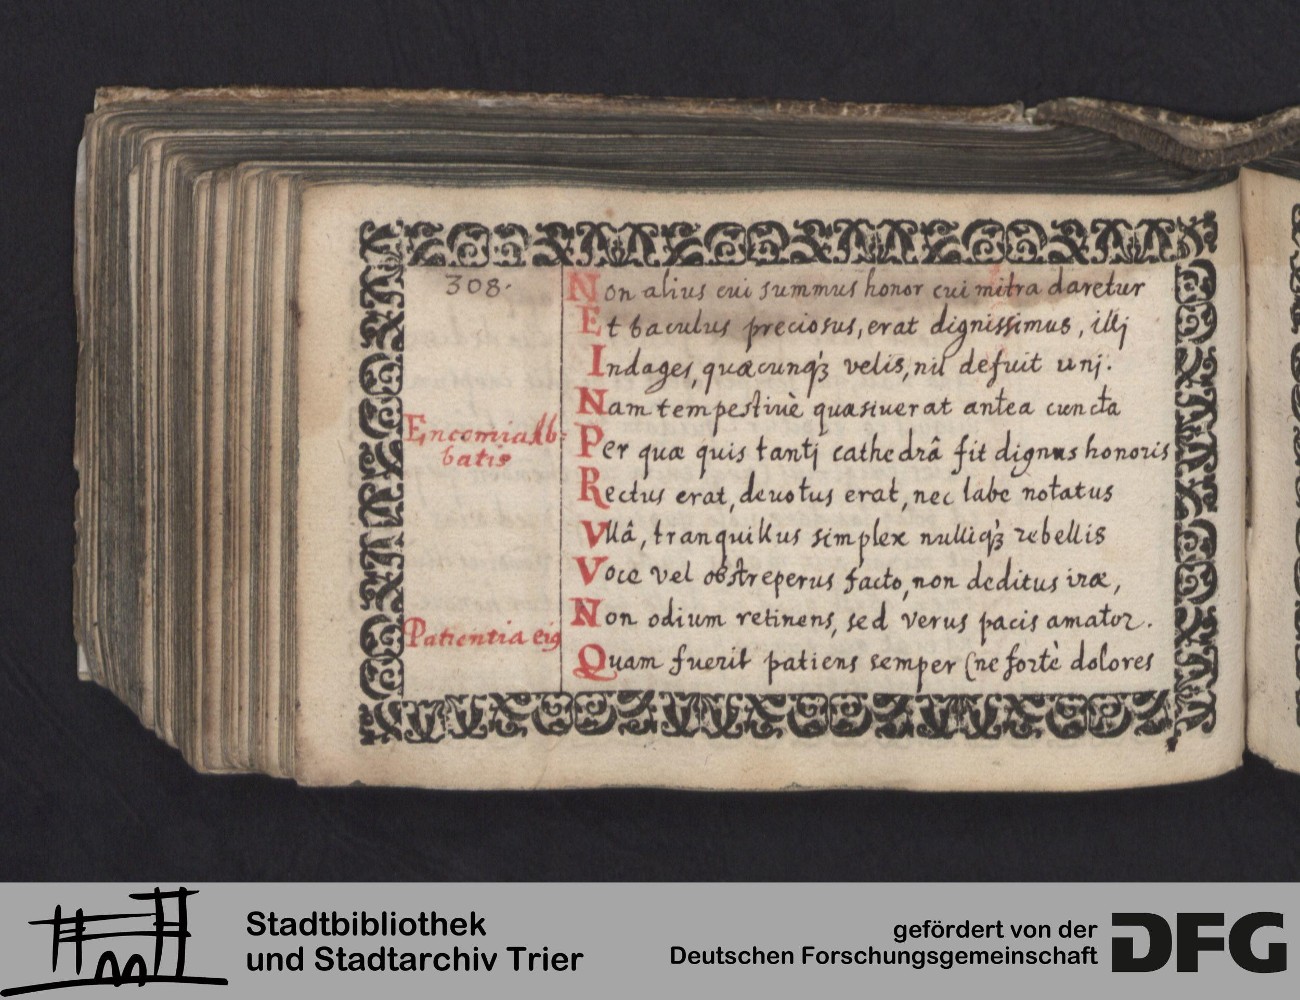 308.
Non alius cui summus honor cui mitra daretur
Et baculus preciosus, erat dignissimus, illj
Indages, quæcunqꝫ velis, nil defuit unj.
Nam tempestiuè quæsiuerat antea cuncta
Encomia Ab=
batis
Per quæ quis tantj cathedrâ fit dignus honoris
Rectus erat, deuotus erat, nec labe notatus
Vllâ, tranquillus simplex nulliqꝫ rebellis
Voce vel obstreperus facto, non deditus iræ,
Non odium retinens, sed verus pacis amator.
Patientia eiꝰ
Quam fuerit patiens semper (ne fortè dolores
Stadtbibliothek
und Stadtarchiv Trier
gefördert von der
Deutschen Forschungsgemeinschaft
DFG